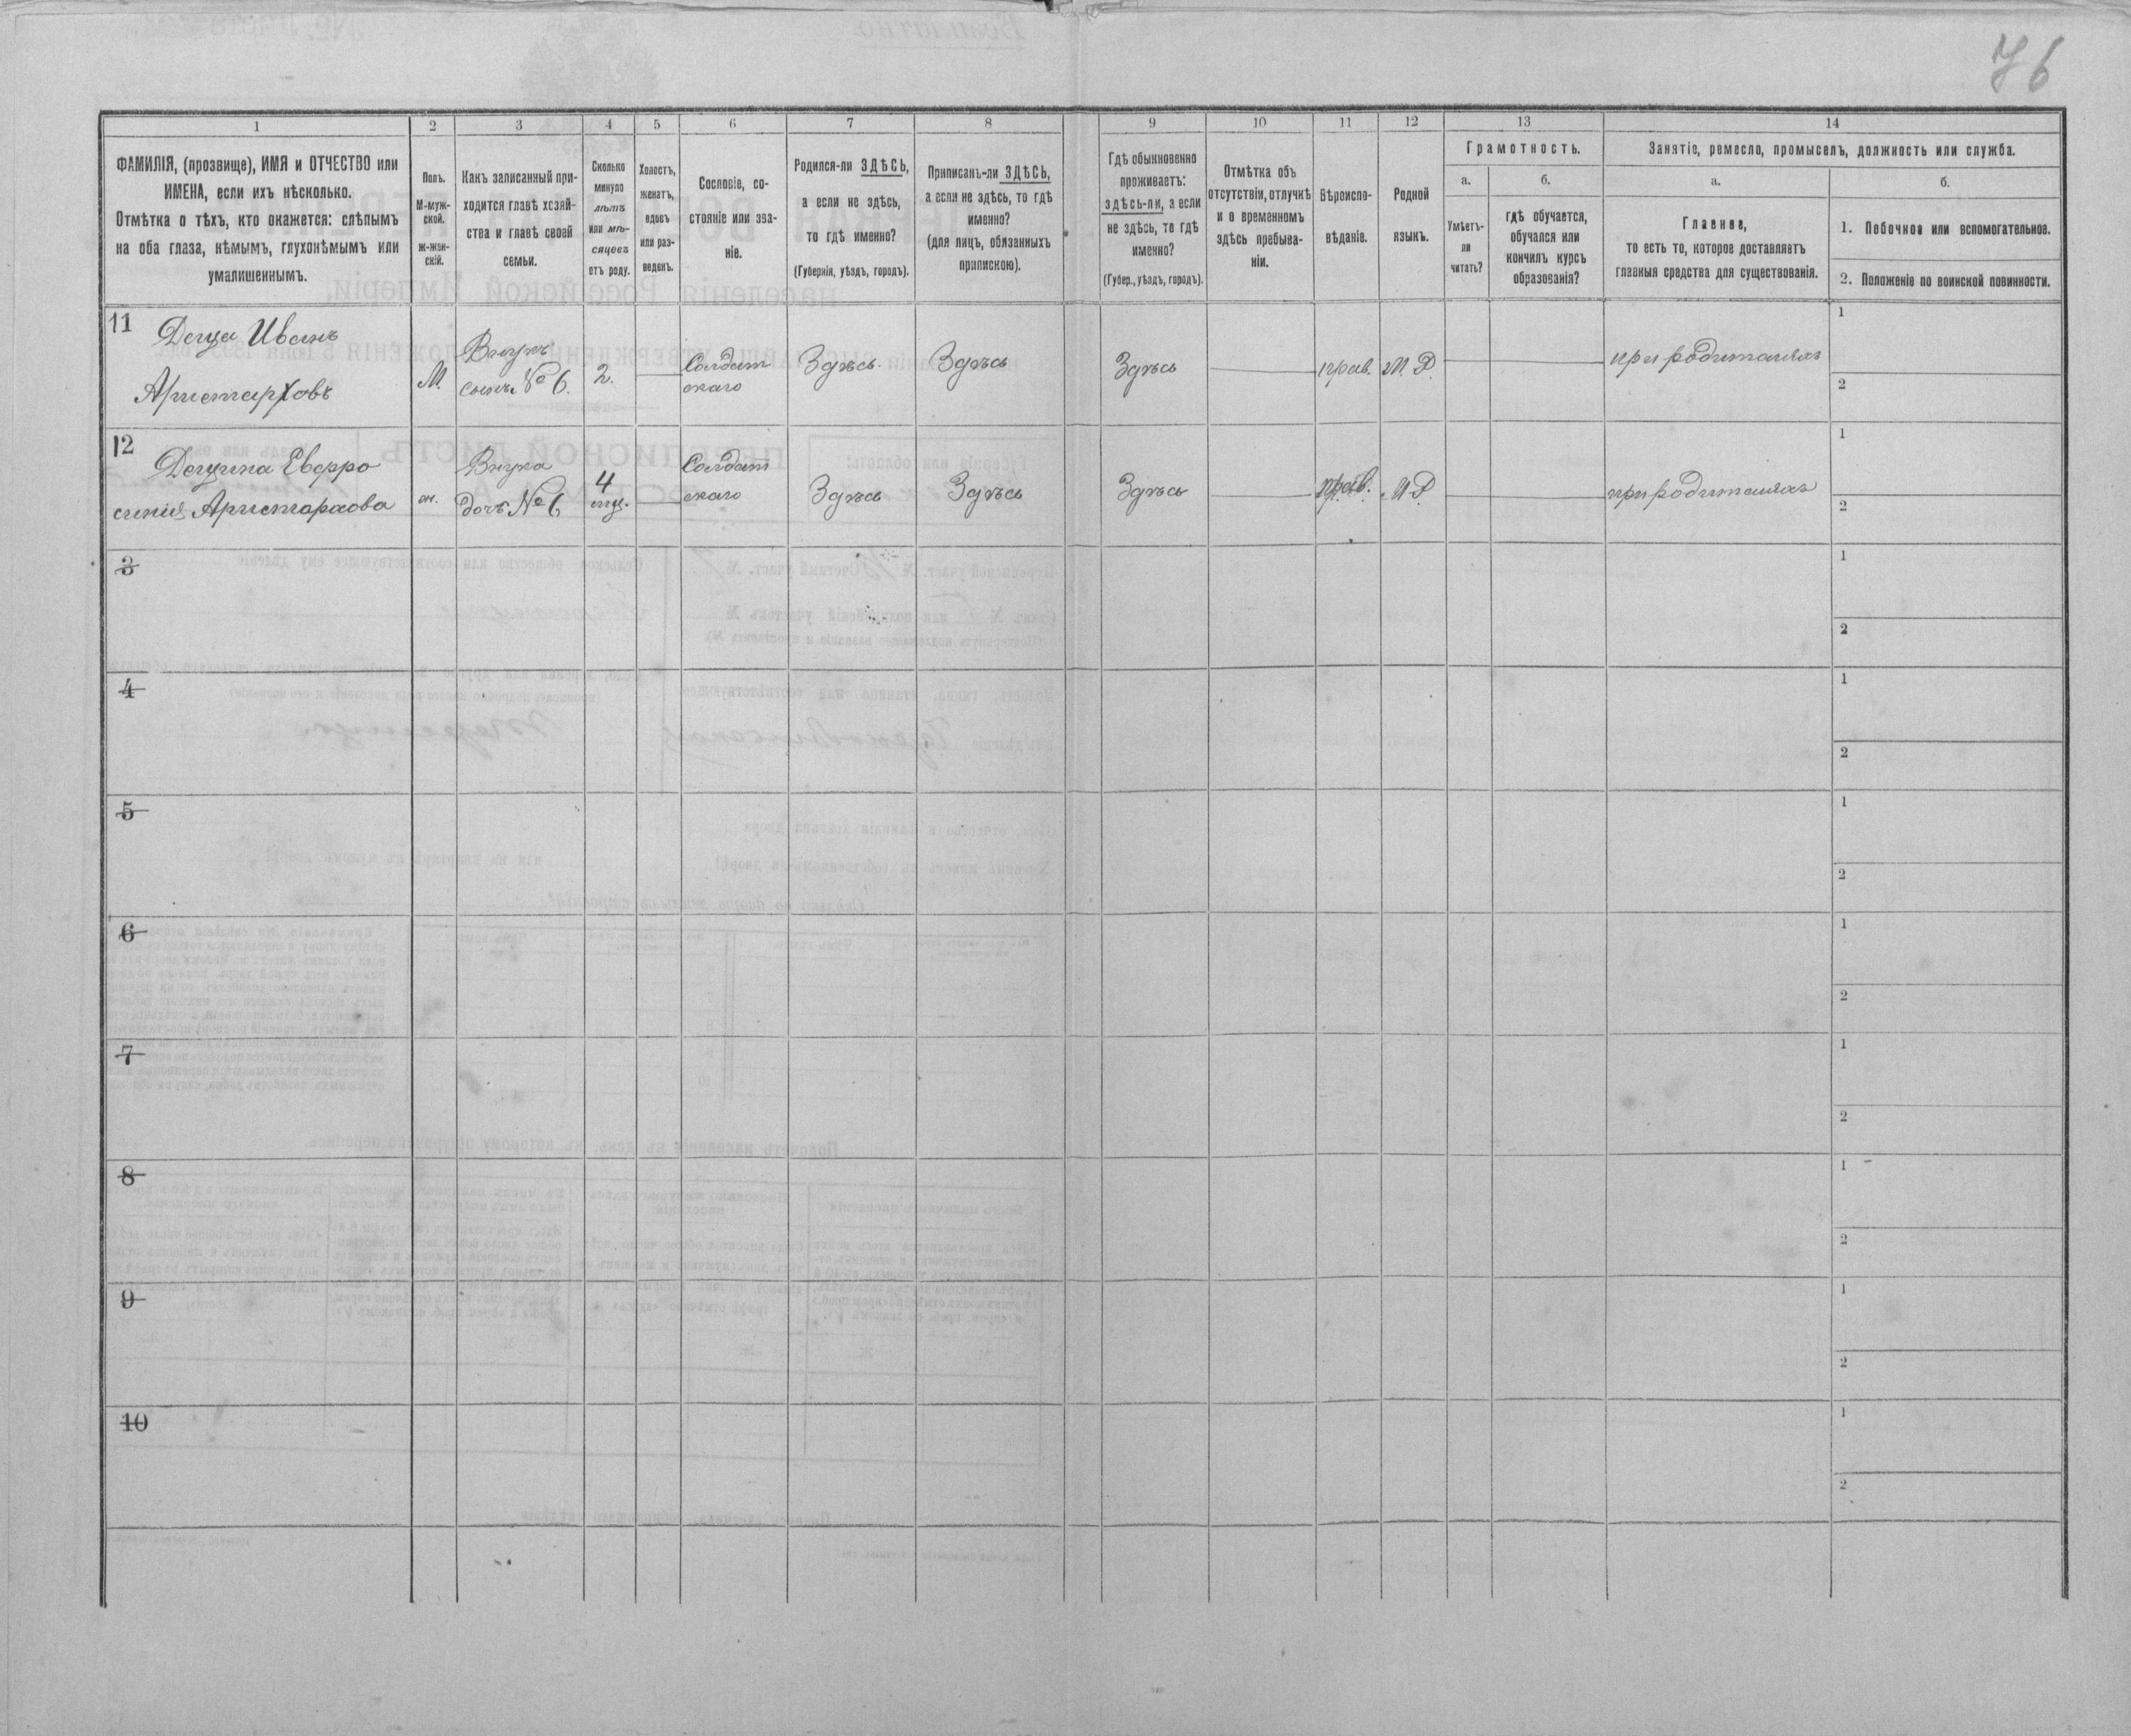 76
1 2 3 4 5 6 7 8 9 10 11 12 13 14
ФАМИЛІЯ, (прозвище), ИМЯ и ОТЧЕСТВО или
ИМЕНА, если ихъ нѣсколько.
Отмѣтка о тѣхъ, кто окажется: слѣпымъ
на оба глаза, нѣмымъ, глухонѣмымъ или
умалишеннымъ.
Полъ.
М-муж-
ской.
ж-жен-
скій.
Какъ записанный при-
ходится главѣ хозяй-
ства и главѣ своей
семьи.
Сколько
минуло
лѣтъ
или мѣ-
сяцевъ
отъ роду.
Холостъ,
женатъ,
вдовъ
или раз-
веденъ.
Сословіе, со-
стояніе или зва-
ніе.
Родился-ли ЗДѢСЬ,
а если не здѣсь,
то гдѣ именно?
(Губернія, уѣздъ, городъ).
Приписанъ-ли ЗДѢСЬ,
а если не здѣсь, то гдѣ
именно?
(для лицъ, обязанныхъ
припискою).
Гдѣ обыкновенно
проживаетъ:
здѣсь-ли, а если
не здѣсь, то гдѣ
именно?
(Губер., уѣздъ, городъ).
Отмѣтка объ
отсутствіи, отлучкѣ
и о временномъ
здѣсь пребыва-
ніи.
Вѣроиспо-
вѣданіе.
Родной
языкъ.
Грамотность.
а.
Умѣетъ-
ли
читать?
б.
гдѣ обучается,
обучался или
кончилъ курсъ
образованія?
Занятіе, ремесло, промыселъ, должность или служба.
а.
Главное,
то есть то, которое доставляетъ
главныя средства для существованія.
б.
1. Побочное или вспомогательное.
2. Положеніе по воинской повинности.
11
Деща Иванъ
Аристарховъ
М.
Внукъ
сынъ № 6.
2.
Солдат
скаго
Здѣсь.
Здѣсь
Здѣсь
прав.
М. Р.
при родителяхъ
1
2
12
Евфро
синія Аристархова
ж.
Внука
дочь № 6
4
мц.
Солдат
скаго
Здѣсь
Здѣсь
Здѣсь
прав.
М. Р.
при родителяхъ
1
2
3
1
2
4
1
2
5
1
2
6
1
2
7
1
2
8
1
2
9
1
2
10
1
2